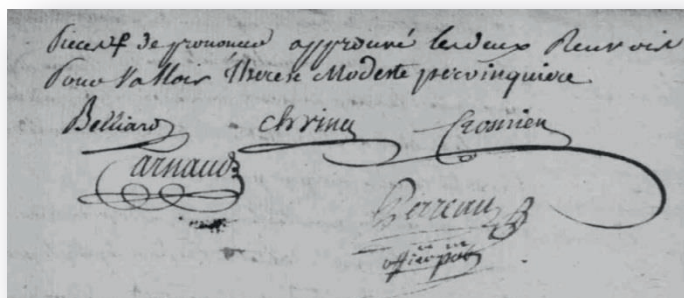 de prononcé approuvé les deux Renvois
Pour Valloir Therese Modeste pervinquiere
Belliard chrina
arnaud
Perreau
officier pub